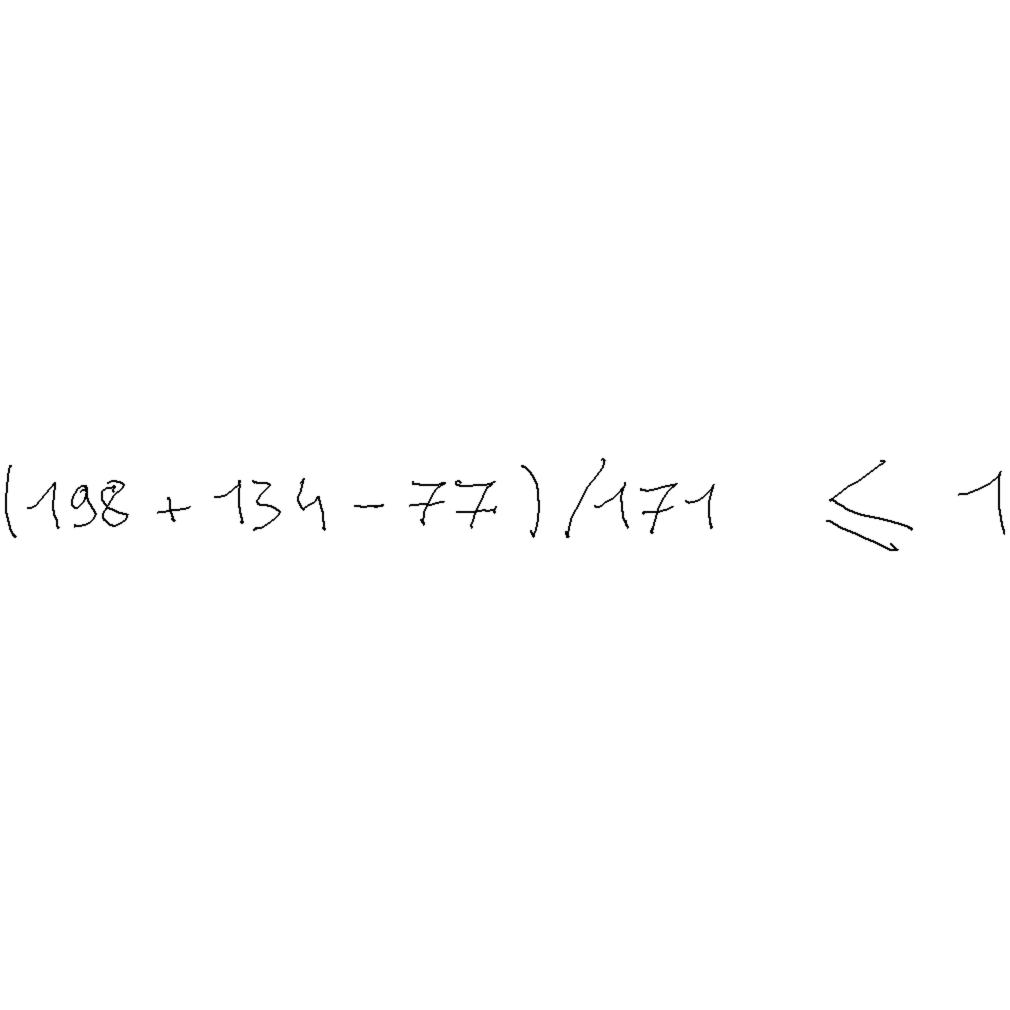 (198 + 134 - 77) / 171 ≤ 1